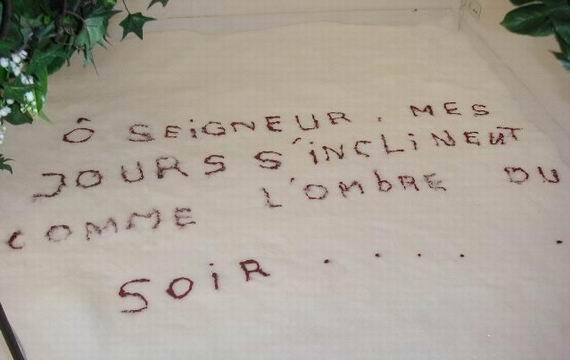 Ô SEiGNEUR. MES
JOURS S'iNCLiNENT
COMME L'OMbRE DU
SOiR.....